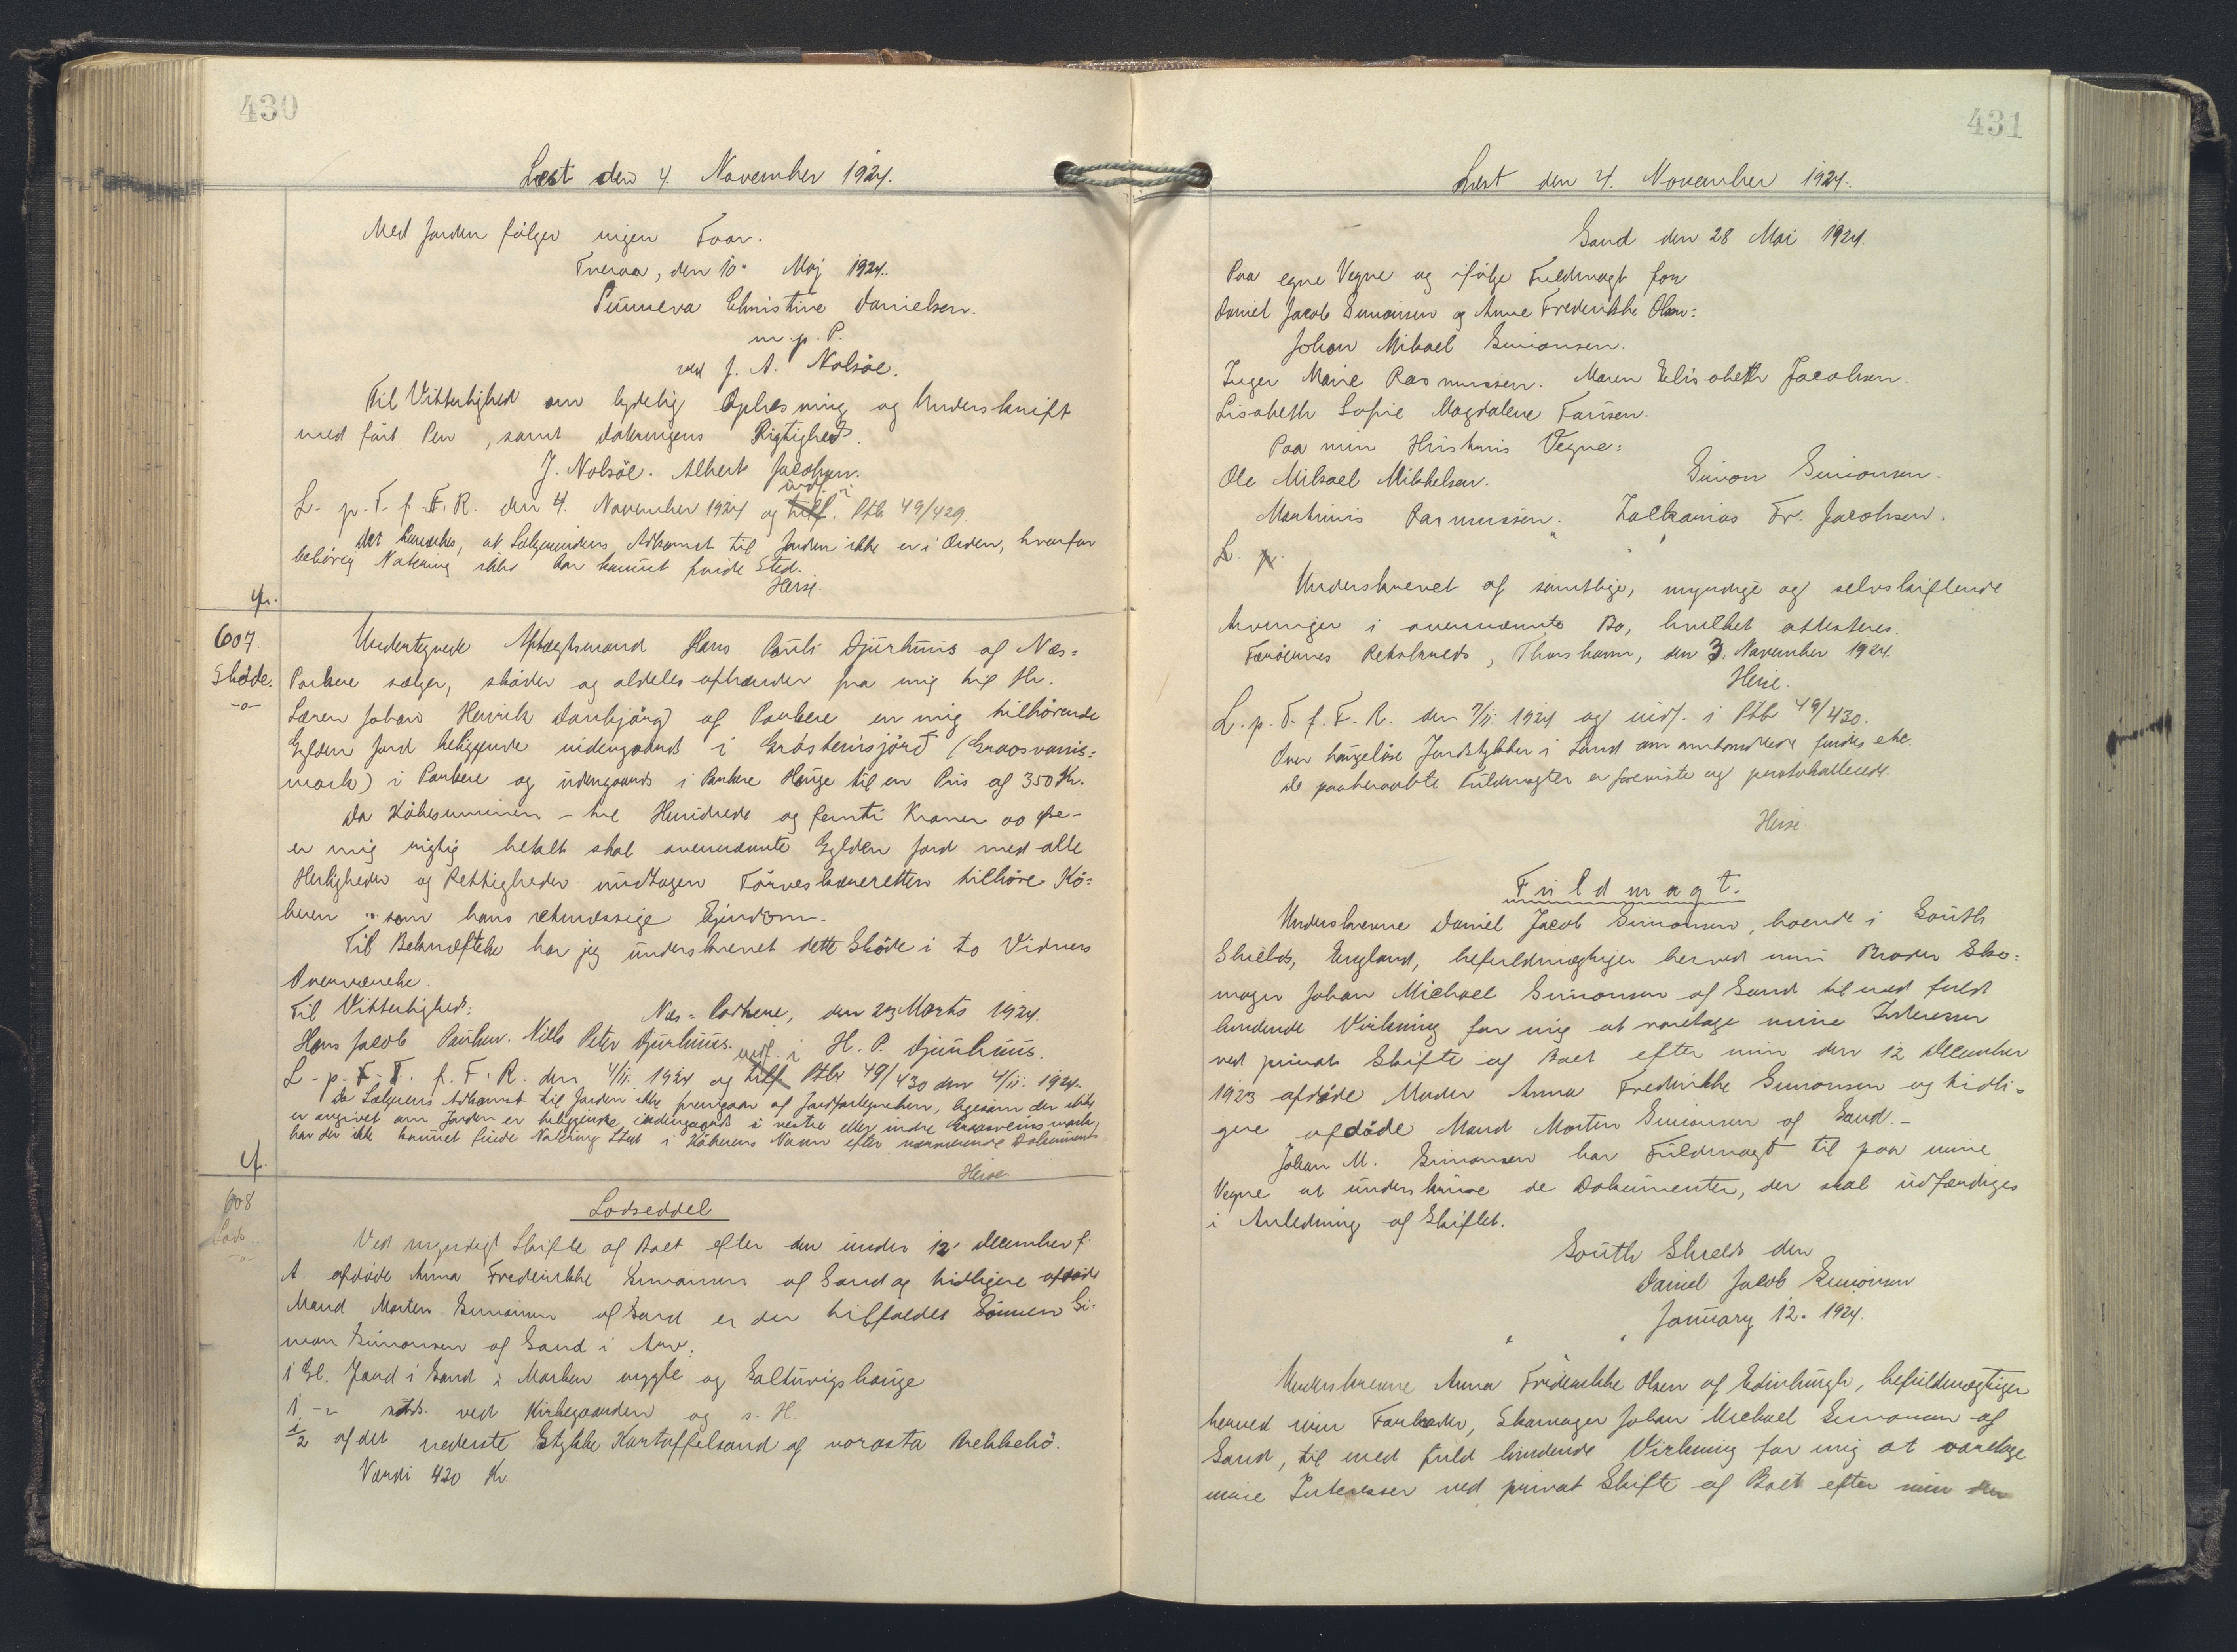 430
Læst den 4. November 1924.
Med Jorden følger ingen Faar.
Tveraa, den 10. Maj 1924.
Sunneva Christine Danielsen.
m. p. P.
ved J. A. Nolsöe.
Til Vitterlighed om lydelig Oplæsning og Underskrift
med ført Pen, samt Dateringens Rigtighed.
J. Nolsöe. Albert Jacobsen.
indf. i
L. p. T. f. F. R. den 4. November 1924 og tilf. Ptb. 49/429.
Det bemærkes, at Sælgerindens Adkomst til Jorden ikke er i Orden, hvorfor
behörig Notering ikke har kunnet finde Sted.
Heise.
607
Skøde.
-o-
Undertegnede Aftægtsmand Hans Pauli Djurhuus af Næs=
Porkere sælger, skøder og aldeles afhænder fra mig til Hr.
Søren Johan Henrik Danbjørg af Porkere en mig tilhörende
Gylden Jord beliggende indengaards i Gróstensjørd (Graosvains=
mark) i Porkere og udengaards i Porkere Hauge til en Pris af 350 Kr.
Da Købesummen - tre Hundrede og femti Kroner 00 Øre -
er mig rigtig betalt skal ovennævnte Gylden Jord med alle
Herligheder og Rettigheder undtagen Törveskæreretten tilhöre Kö=
beren som hans retmæssige Ejendom.
Til Bekræftelse har jeg underskrevet dette Sköde i to Vidners
Overværelse.
Til Vitterlighed: Næs=Porkere, den 29 Marts 1924.
Hans Jacob Poulsen. Niels Peter Djurhuus. H. P. Djurhuus.
indf. i
L. p. T. f. F. R. den 4/11. 1924 og tilf Ptb. 49/430 den 4/11. 1924.
Da Sælgerens Adkomst til Jorden ikke fremgaar af Jordfortegnelsen, ligesom der ikke
er angivet om Jorden er beliggende indengaards i nestre eller indre Graosveins mark,
har der ikke kunnet finde Notering Sted i Köberens Navn efter nærværende Dokument.
Heise
608
Lods..
-o-
Lodseddel
Ved myndigt Skifte af Boet efter den under 12' December f.
A. afdöde Anna Frederikke Simonsen af Sand og tidligere afdöde
Mand Morten Simonsen af Sand er der tilfaldet Sönnen Si=
mon Simonsen af Sand i Arv:
1 Gl. Jord i Sand i Marken mygle og Salturigs hauge
1 -"- sstds. ved Kirkegaarden og s. H.
1/2 af det nederste Stykke Kartoffelsand af norasta Brekkebö.
Værdi 420 Kr.
431
Læst den 4. November 1924.
Sand den 28 Mai 1924.
Paa egne Vegne og ifölge Fuldmagt for
Daniel Jacob Simonsen og Anne Frederikke Olsen:
Johan Mikael Simonsen.
Inger Marie Rasmussen. Maren Elisabeth Jacobsen.
Lisabeth Sofie Magdalene Joensen.
Paa min Hustrus Vegne:
Ole Mikael Mikkelsen. Simon Simonsen.
Martinus Rasmussen. Zakarias Fr. Jacobsen.
L. p.
Underskrevet af samtlige, myndige og selvskiftende
Arvinger i ovennævnte Bo, hvilket attesteres.
Færöernes Retskreds, Thorshavn, den 3. November 1924.
Heise.
L. p. T. f. F. R. den 4/11. 1924 og indf. i Ptb. 49/430.
Over haugelöse Jordstykker i Sand som anmeldte findes ikke.
de paaberaabte Fuldmagter er foreviste og protokollerede.
Heise
Fuldmagt.
Underskrevne Daniel Jacob Simonsen, boende i South
Shields, England, befuldmægtiger herved min Broder Sko=
mager Johan Michael Simonsen af Sand til med fuld
bindende Virkning for mig at varetage mine Interesser
ved privat Skifte af Boet efter min den 12 December
1923 afdöde Moder Anna Frederikke Simonsen og tidli=
gere afdöde Mand Morten Simonsen af Sand.-
Johan M. Simonsen har Fuldmagt til paa mine
Vegne at underskrive de Dokumenter, der skal udfærdiges
i Anledning af Skiftet.
South Shields den
Daniel Jacob Simonsen
January 12. 1924.
Underskrevne Anna Frederikke Olsen af Edinburgh, befuldmægtiger
herved min Farbroder, Skomager Johan Michael Simonsen af
Sand, til med fuld bindende Virkning for mig at varetage
mine Interesser ved privat Skifte af Boet efter min den